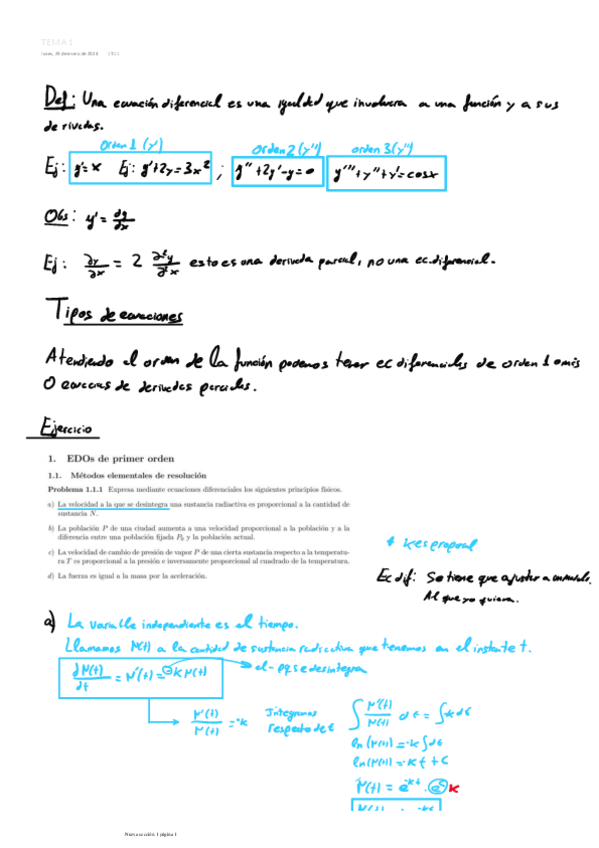 TEMA 1
Def: Una ecuación diferencial es una igualdad que involucra a una función y a sus
derivadas.
Orden 1 (y') Orden 2 (y'') orden 3 (y''')
Ej: y'=x Ej: y'+2y=3x² ; y''+2y'-y=0 y'''+y''+y'=cosx
Obs: y' = dy/dx
Ej: ∂y/∂x = 2 ∂²y/∂²x esto es una derivada parcial, no una ec. diferencial.
Tipos de ecuaciones
Atendiendo el orden de la función podemos tener ec diferenciales de orden 1 o más
O ecuaciones de derivadas parciales.
Ejercicio
1. EDOs de primer orden
1.1. Métodos elementales de resolución
Problema 1.1.1 Expresa mediante ecuaciones diferenciales los siguientes principios físicos.
a) La velocidad a la que se desintegra una sustancia radiactiva es proporcional a la cantidad de
sustancia N.
b) La población P de una ciudad aumenta a una velocidad proporcional a la población y a la
diferencia entre una población fijada P₀ y la población actual.
c) La velocidad de cambio de presión de vapor P de una cierta sustancia respecto a la temperatu-
ra T es proporcional a la presión e inversamente proporcional al cuadrado de la temperatura.
d) La fuerza es igual a la masa por la aceleración.
k es proporcional
Ec dif: Se tiene que ajustar a
Al que yo quiera.
a) La variable independiente es el tiempo.
Llamamos N(t) a la cantidad de sustancia radiactiva que tenemos en el instante t.
dN(t)/dt = N'(t) = -K N(t) el - pq se desintegra
N'(t)/N(t) = -k Integramos respecto de t ∫ N'(t)/N(t) dt = ∫ -k dt
ln(N(t)) = -k ∫ dt
ln(N(t)) = -k t + C
N(t) = e^-kt · e^c K
Nueva sección 1 página 1